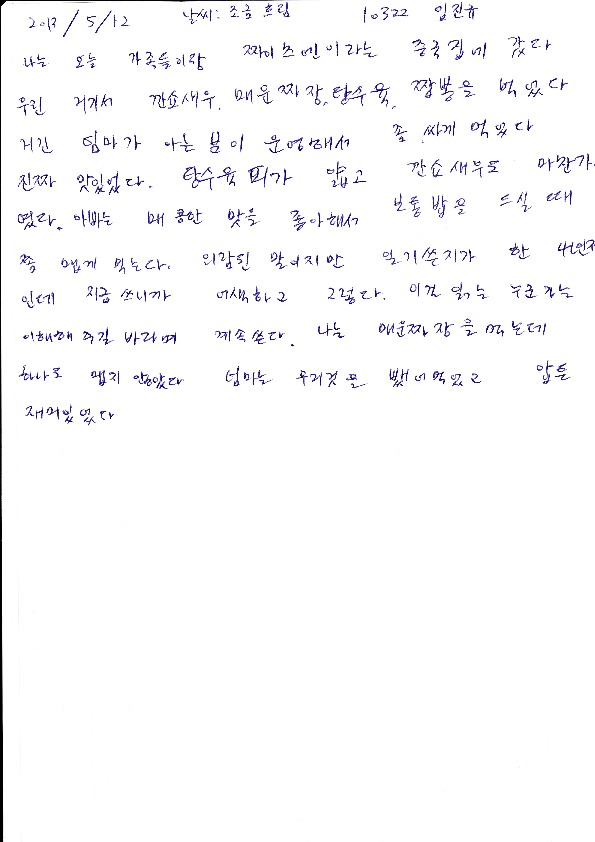 2013/5/12 날씨: 조금 흐림 10322 임진규
나는 오늘 가족들이랑 짜이즈멘이라는 중국집에 갔다
우린 거기서 깐쇼새우, 매운짜장, 탕수육, 짬뽕을 먹었다
거긴 엄마가 아는 분이 운영해서 좀 싸게 먹었다
진짜 맛있었다. 탕수육 피가 얇고 깐쇼새우도 마찬가
였다. 아빠는 매콤한 맛을 좋아해서 보통 밥을 드실 때
쫌 맵게 먹는다. 외람된 말이지만 일기쓴지가 한 4년만
인데 지금 쓰니까 어색하고 그렇다. 이건 읽는 누군가는
이해해 주길 바라며 계속쓴다. 나는 매운짜장을 먹는데
하나도 맵지 않았다 엄마는 우리것을 뺏어먹었고 암튼
재미있었다